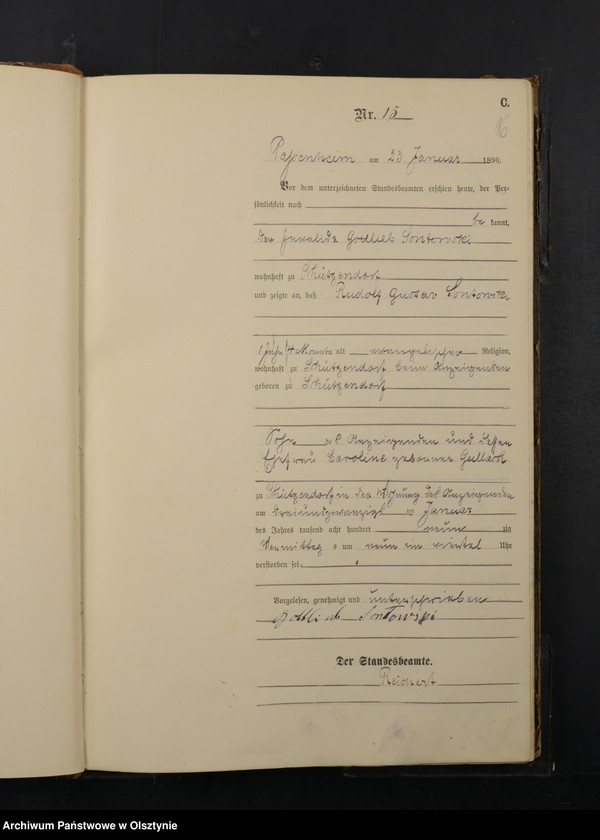 C.
Nr. 15
Passenheim am 23 Januar 1890.
Vor dem unterzeichneten Standesbeamten erschien heute, der Per-
sönlichkeit nach
be kannt,
der Invalide Gottlieb Sontowski
wohnhaft zu Schützendorf
und zeigte an, daß Rudolf Gustav Sontowski
1 Jahr 4 Monate alt evangelischer Religion,
wohnhaft zu Schützendorf beim Anzeigenden
geboren zu Schützendorf
Sohn des Anzeigenden und dessen
Ehefrau Caroline geborenen
zu Schützendorf in der Wohnung des Anzeigenden
am dreiundzwanzigsten Januar
des Jahres tausend acht hundert neun zig
Vormittag s um neun ein viertel Uhr
verstorben sei.
Vorgelesen, genehmigt und unterschrieben
Gottlieb Sontowski
Der Standesbeamte.
Reichert
Archiwum Państwowe w Olsztynie